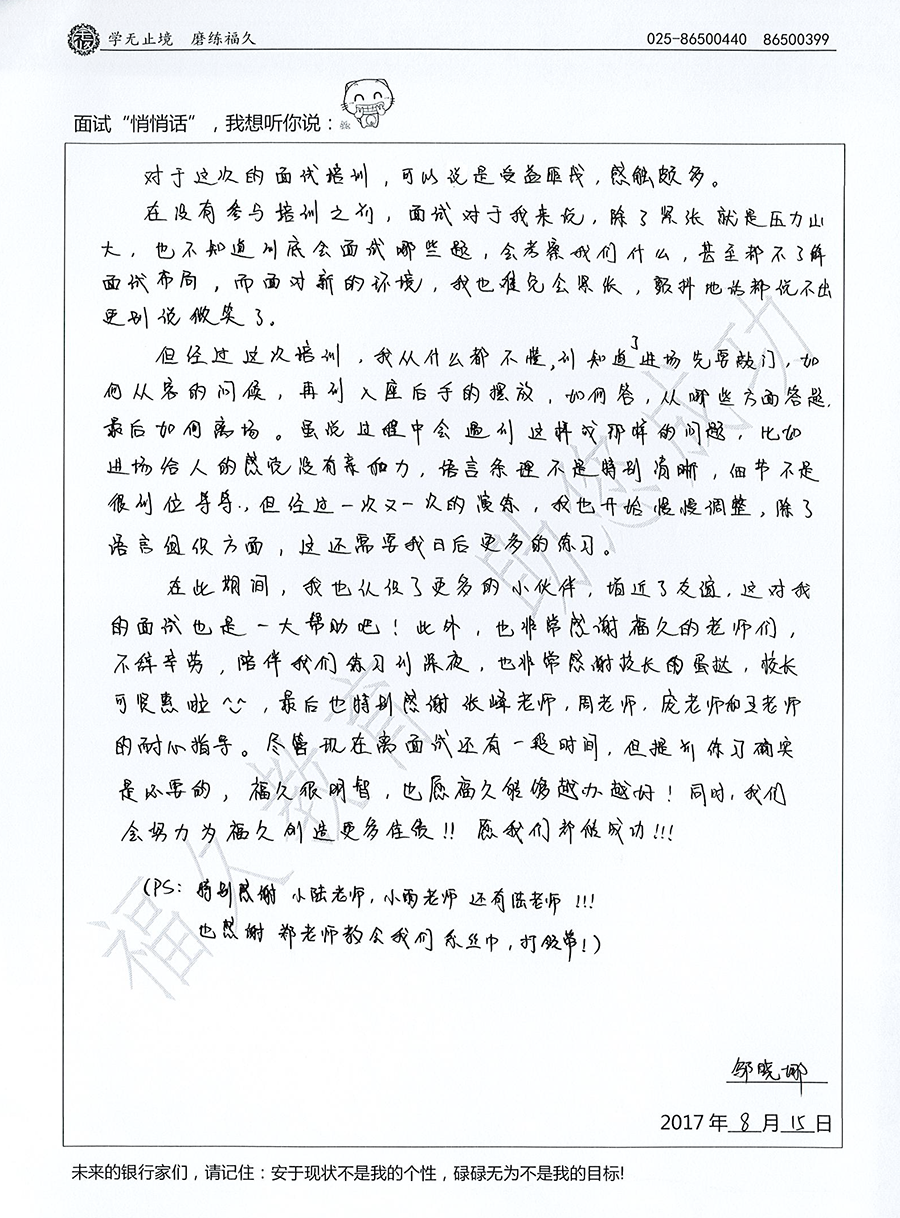 学无止境 磨练福久
025-86500440 86500399
面试“悄悄话”，我想听你说：
对于这次的面试培训，可以说是受益匪浅，感触颇多。
在没有参与培训之前，面试对于我来说，除了紧张就是压力山
大，也不知道到底会面试哪些题，会考察我们什么，甚至都不了解
面试布局，而面对新的环境，我也难免会紧张，颤抖地话都说不出
更别说微笑了。
但经过这次培训，我从什么都不懂，到知道了进场先要敲门，如
何从容的问候，再到入座后手的摆放，如何答，从哪些方面答题，
最后如何离场。虽说过程中会遇到这样或那样的问题，比如
进场给人的感觉没有亲和力，语言条理不是特别清晰，细节不是
很到位等等.，但经过一次又一次的演练，我也开始慢慢调整，除了
语言组织方面，这还需要我日后更多的练习。
在此期间，我也认识了更多的小伙伴，增近了友谊，这对我
的面试也是一大帮助吧！此外，也非常感谢福久的老师们，
不辞辛劳，陪伴我们练习到深夜，也非常感谢校长的蛋挞，校长
可贤惠啦，最后也特别感谢张峰老师，周老师，庞老师和王老师
的耐心指导。尽管现在离面试还有一段时间，但提前练习确实
是必要的，福久很明智，也愿福久能够越办越好！同时，我们
会努力为福久创造更多佳绩!! 愿我们都能成功!!!
（PS：特别感谢小陆老师，小雨老师还有陆老师!!!
也感谢郑老师教会我们系丝巾，打领带！）
邹晓娜
2017年8月15日
未来的银行家们，请记住：安于现状不是我的个性，碌碌无为不是我的目标!
福久教育 助您成功